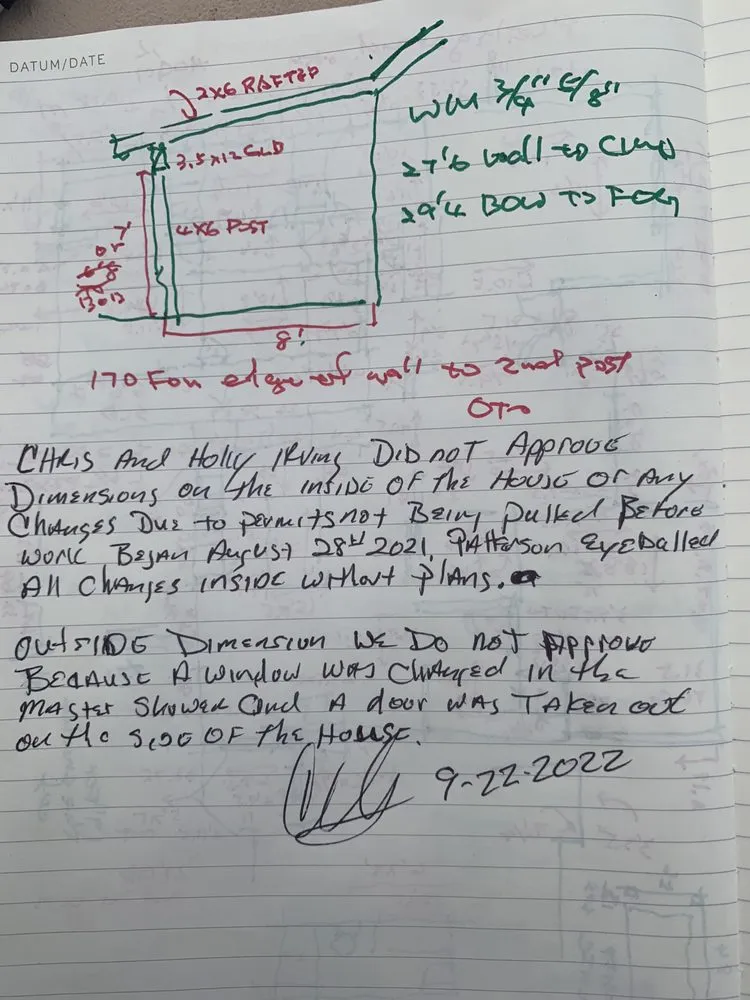 DATUM/DATE
2x6 RAFTER
3.5x12 GLB
4x6 POST
7'
or
8'
WM 3/4" 5/8"
27'6 Wall to
29'4 TO
170 edge of wall to 2nd post
CHRIS And Holly IRVing DID noT Approve
Dimensions on the inside OF the House or Any
Changes Due to permits not Being pulled Before
work Began August 28th 2021. PATTerson Eyeballed
All Changes inside without plans.
OUTSIDE Dimension WE Do not Approve
Because A window was Changed in the
Master Shower and A door was TAKen out
on the SIDE OF the House.
9-22-2022